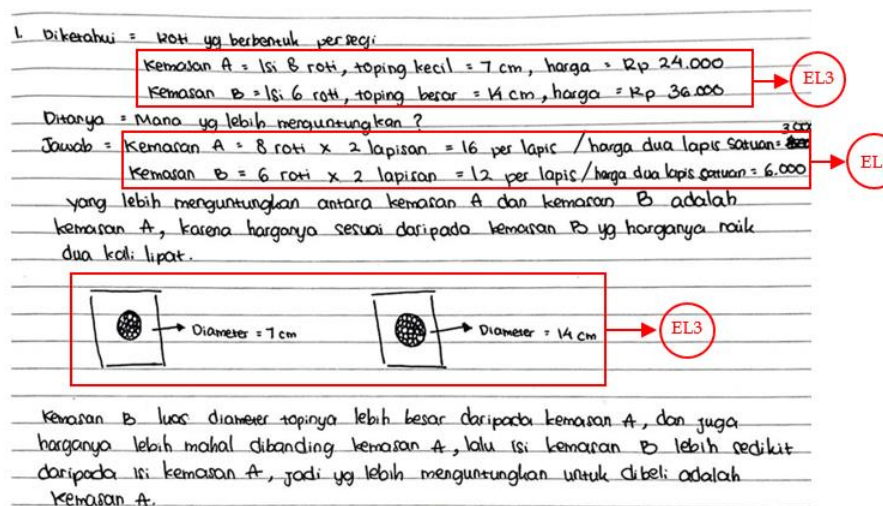 1. Diketahui = Roti yg berbentuk persegi
Kemasan A = Isi 8 roti, toping kecil = 7 cm, harga = Rp 24.000
EL3
Kemasan B = Isi 6 roti, toping besar = 14 cm, harga = Rp 36.000
Ditanya = Mana yg lebih menguntungkan ?
Jawab = Kemasan A = 8 roti x 2 lapisan = 16 per lapis / harga dua lapis satuan =
Kemasan B = 6 roti x 2 lapisan = 12 per lapis / harga dua lapis satuan = 6.000
EL
yang lebih menguntungkan antara kemasan A dan kemasan B adalah
kemasan A, karena harganya sesuai daripada kemasan B yg harganya naik
dua kali lipat.
Diameter = 7 cm
Diameter = 14 cm
EL3
Kemasan B luas diameter topinya lebih besar daripada kemasan A, dan juga
harganya lebih mahal dibanding kemasan A, lalu isi kemasan B lebih sedikit
daripada isi kemasan A, jadi yg lebih menguntungkan untuk dibeli adalah
Kemasan A.